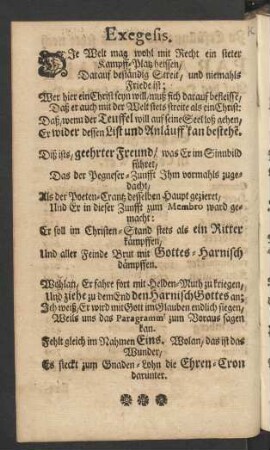 Exegesis.
DIe Welt mag wohl mit Recht ein steter
Kampff-Platz heissen,
Darauf beständig Streit, und niemahls
Friede ist;
Wer hier ein Christ seyn will, muß sich darauf befleissẽ,
Daß er auch mit der Welt stets streite als ein Christ:
Daß, wenn der Teuffel will auf seine Seel loß gehen,
Er wider dessen List und Anläuff kan bestehẽ.
Diß ists, geehrter Freund / was Er im Sinnbild
führet,
Das der Pegneser-Zunfft Ihm vormahls zuge-
dacht,
Als der Poeten-Crantz desselben Haupt gezieret,
Und Er in dieser Zunfft zum Membro ward ge-
macht:
Er soll im Christen-Stand stets als ein Ritter
kämpffen,
Und aller Feinde Brut mit Gottes-Harnisch
dämpffen.
Wohlan, Er fahre fort mit Helden-Muth zu kriegen,
Und ziehe zu dem End den Harnisch Gottes an;
Ich weiß, Er wird mit Gott im Glauben endlich siegen,
Weils uns das Paragramm' zum Voraus sagen
kan.
Fehlt gleich im Nahmen Eins. Wolan, das ist das
Wunder,
Es steckt zum Gnaden-Lohn die Ehren-Cron
darunter.